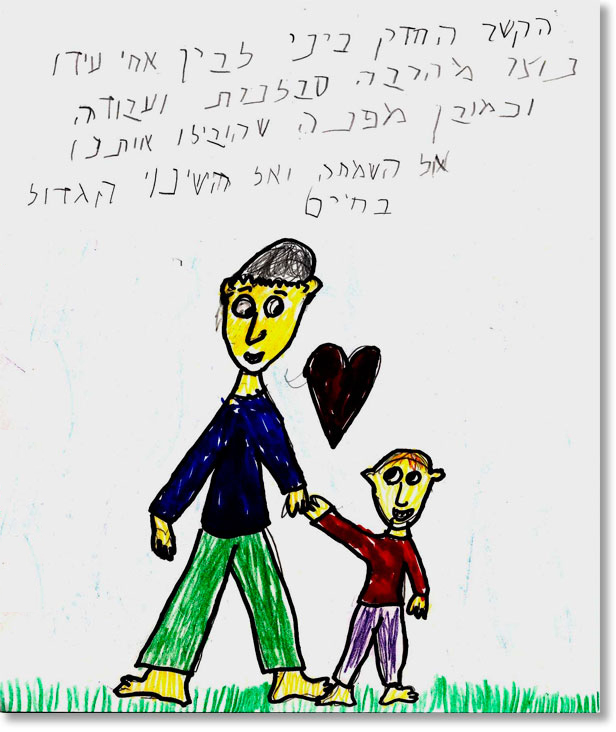 הקשר החזק ביני לבין אחי עידו
נוצר מהרבה סבלנות ועבודה
וכמובן מפנה שהובילו אותנו
אל השמחה ואל השינוי הגדול
בחיים